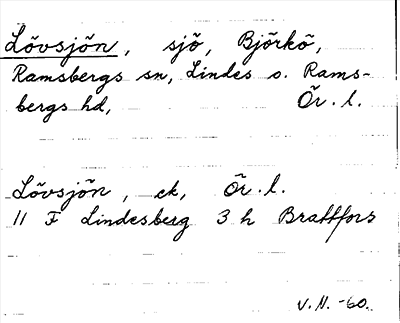 Lövsjön, sjö, Björkö,
Ramsbergs sn, Lindes o. Rams-
bergs hd, Ör. l.
Lövsjön, ek, Ör. l.
11 F Lindesberg 3 h Brattfors
V. N. -60.